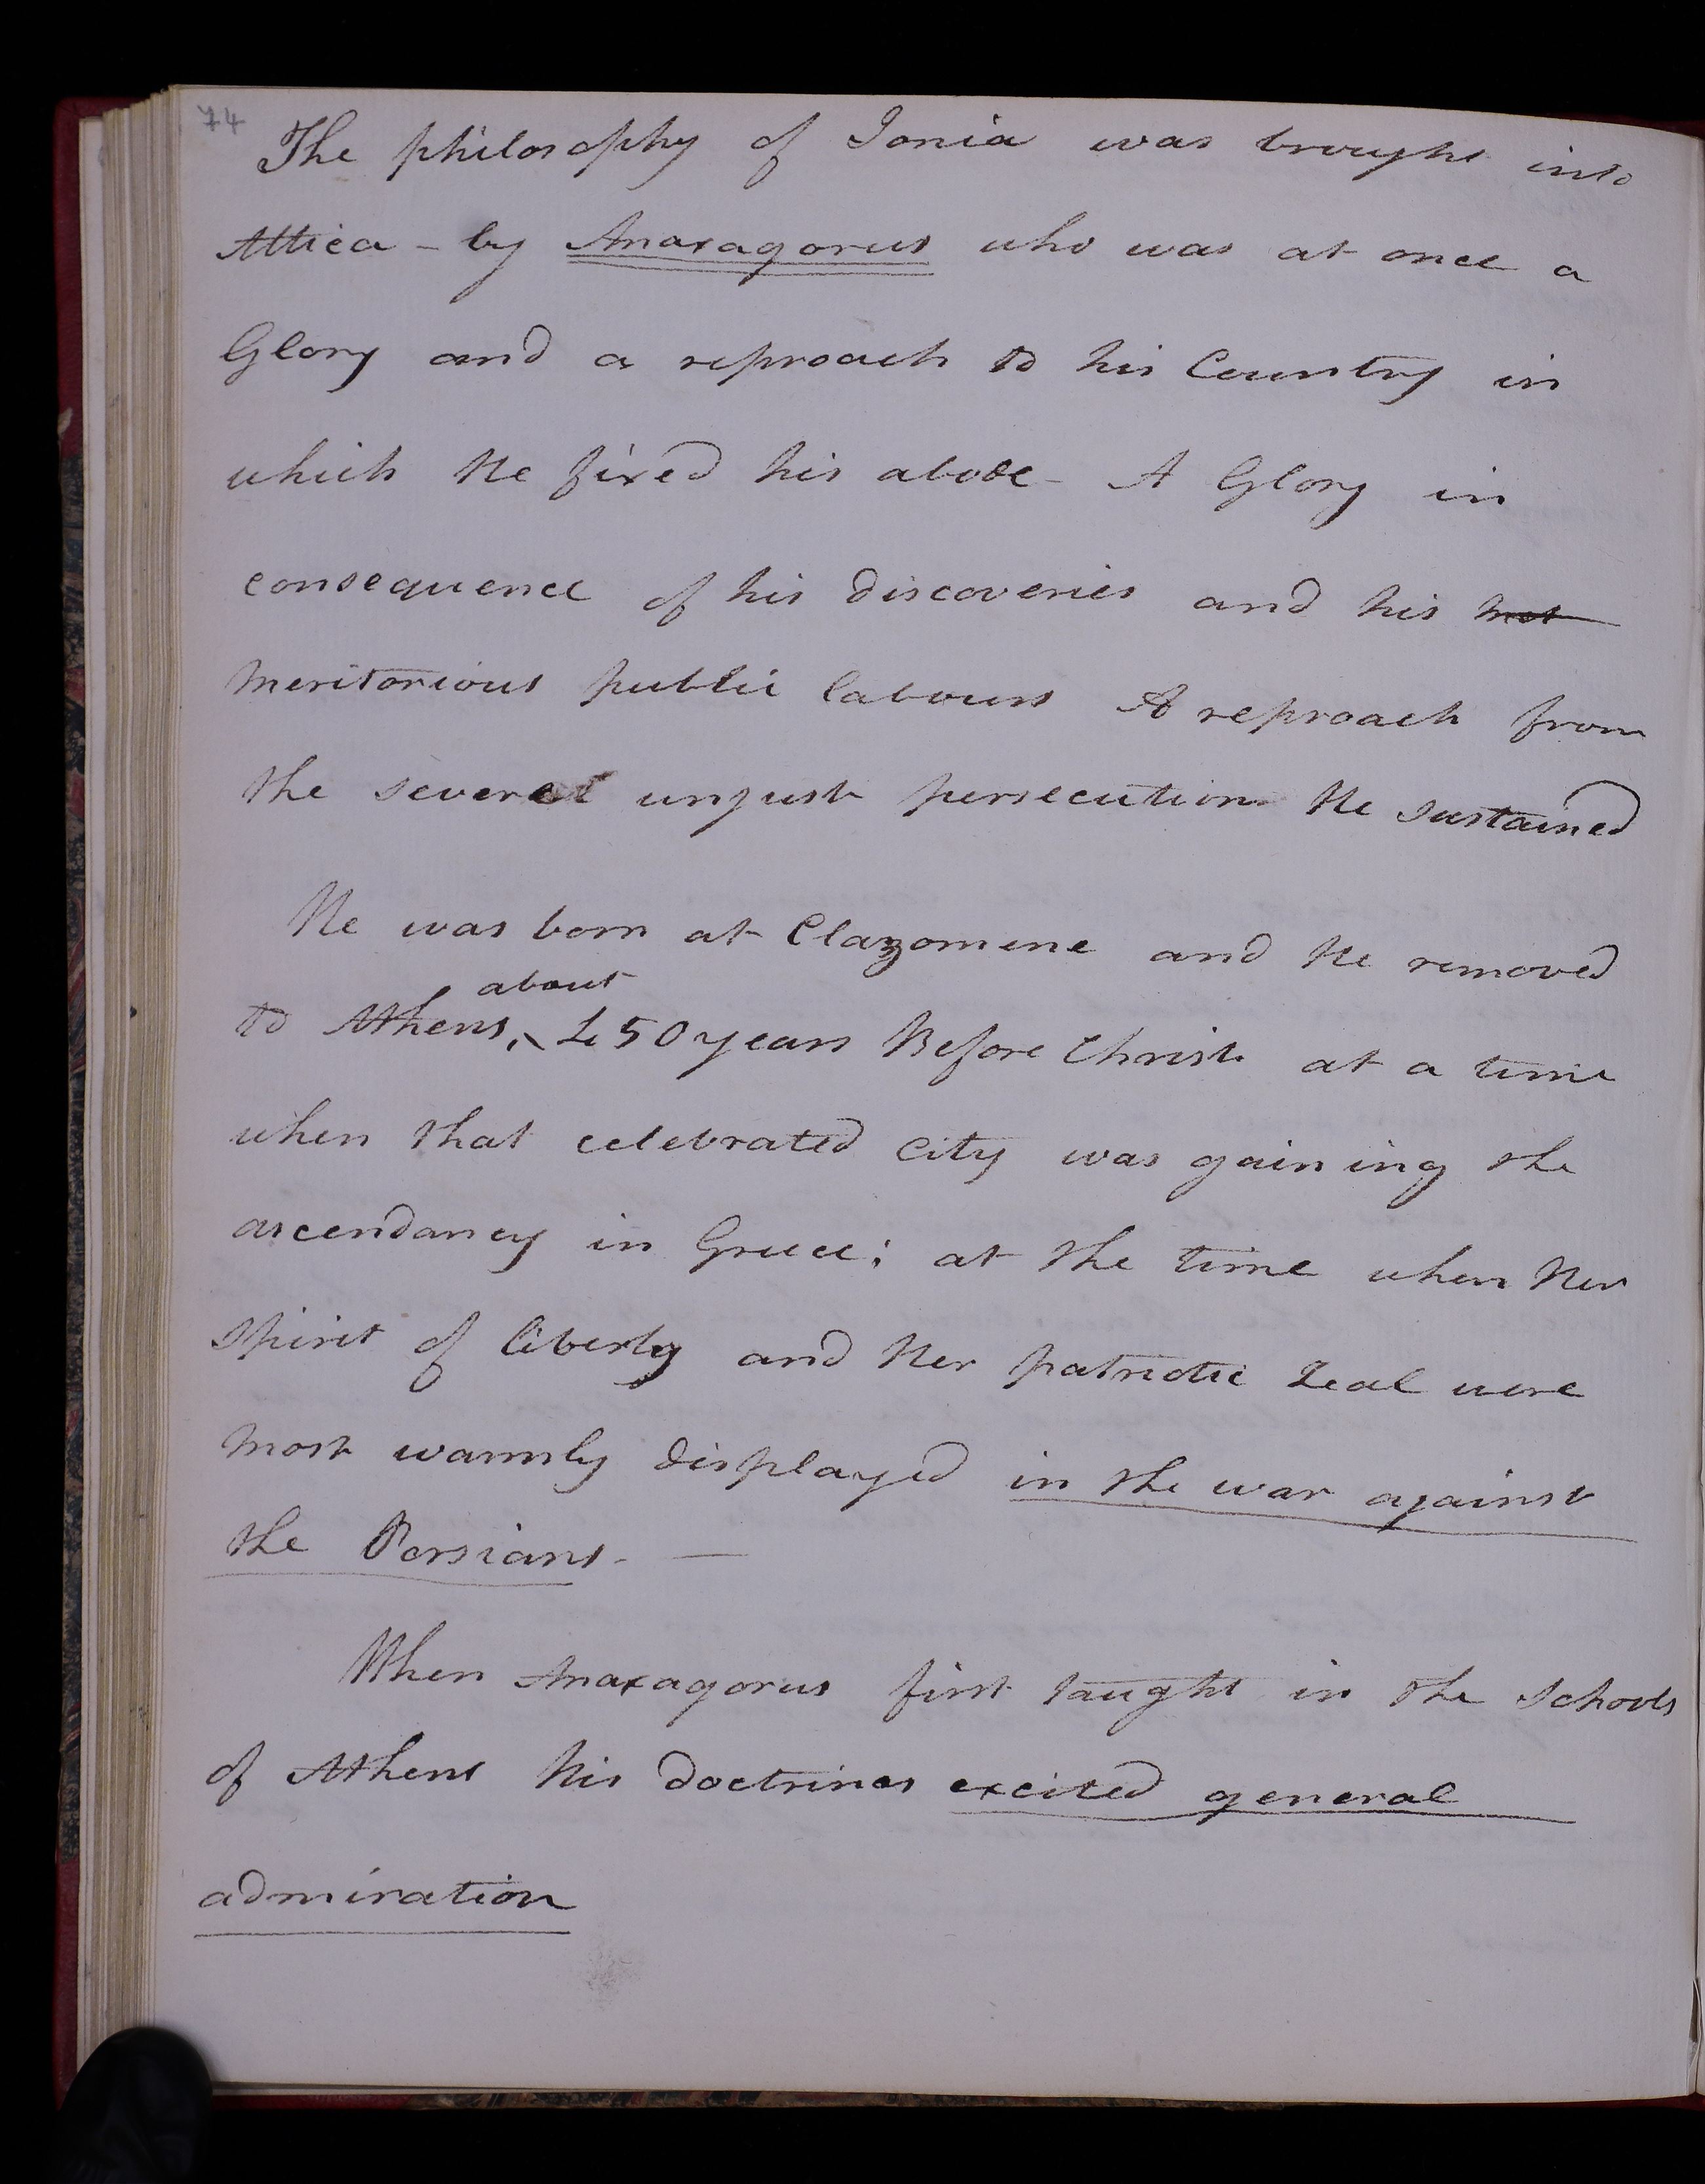 74
The philosophy of Ionia was brought into
Attica - by Anaxagorus who was at once a
Glory and a reproach to his Country in
which He fixed his abode - A Glory in
consequence of his discoveries and his
meritorious public labours A reproach from
the several unjust persecutions He sustained
He was born at Clazomene and He removed
about
to Athens, 450 years Before Christ at a time
when that celebrated City was gaining the
ascendancy in Greece; at the time when Her
spirit of liberty and Her patriotic Zeal were
most warmly displayed in the war against
the Persians. —
When Anaxagorus first taught in the schools
of Athens His doctrines excited general
admiration